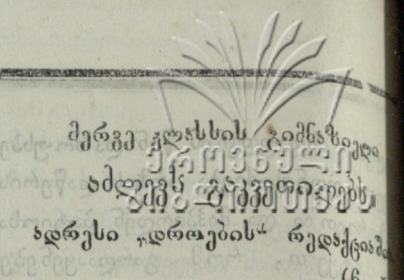 მერვე კლასსის გიმნაზიელი
აძლევს გაკვეთილებს.
ადრესი „დროების“ რედაქციაში
ეროვნული
ბიბლიოთეკა